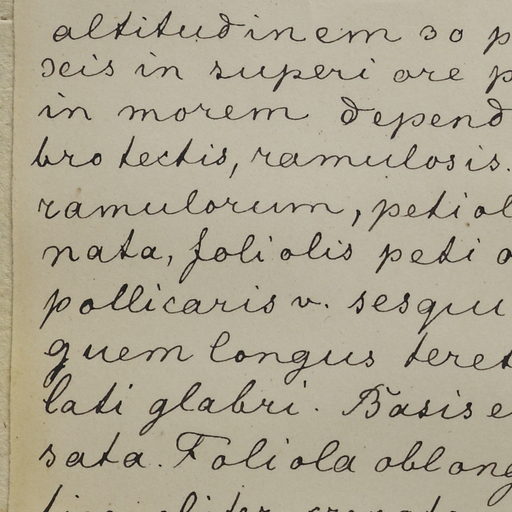 altitudinem 30 p
xis in superiore p
in morem depend
bro tectis, ramulosis.
ramulorum, petiol
nata, foliolis petio
pollicaris v. sesqui
quem longus teret
lati glabri. Basis e
sata. Foliola oblong